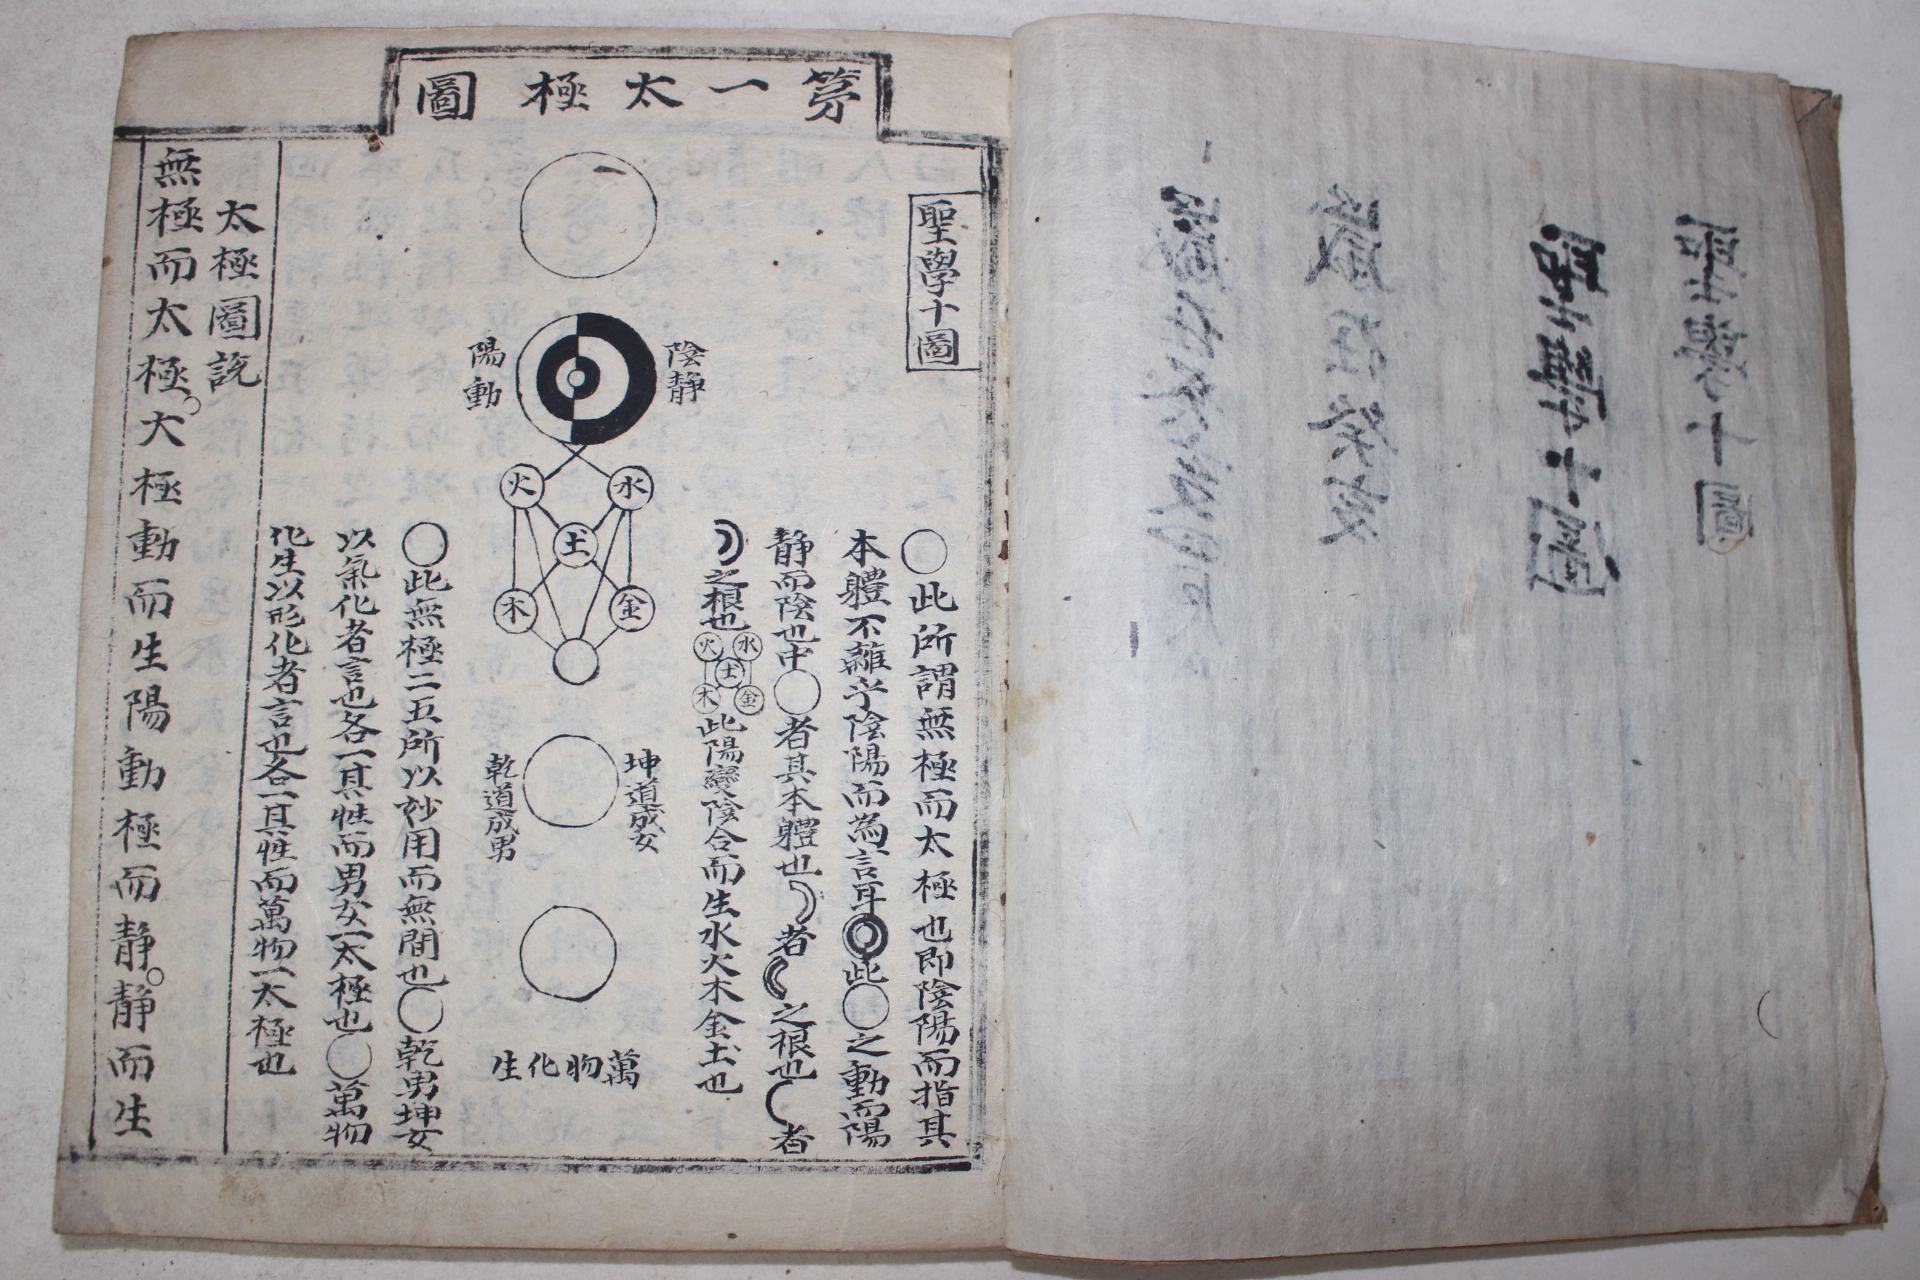 聖學十圖
聖學十圖
歲在癸亥
苐一太極圖
聖學十圖
○此所謂無極而太極也即陰陽而指其
本體不雜乎陰陽而為言耳◎此○之動而陽
靜而陰也中○者其本體也☽者☾之根也☾者
☽之根也水火土金木此陽變陰合而生水火木金土也
陰靜
陽動
水
火
土
金
木
坤道成女
乾道成男
萬物化生
○此無極二五所以妙用而無間也○乾男坤女
以氣化者言也各一其性而男女一太極也○萬物
化生以形化者言也各一其性而萬物一太極也
太極圖說
無極而太極。大極動而生陽動極而靜。靜而生